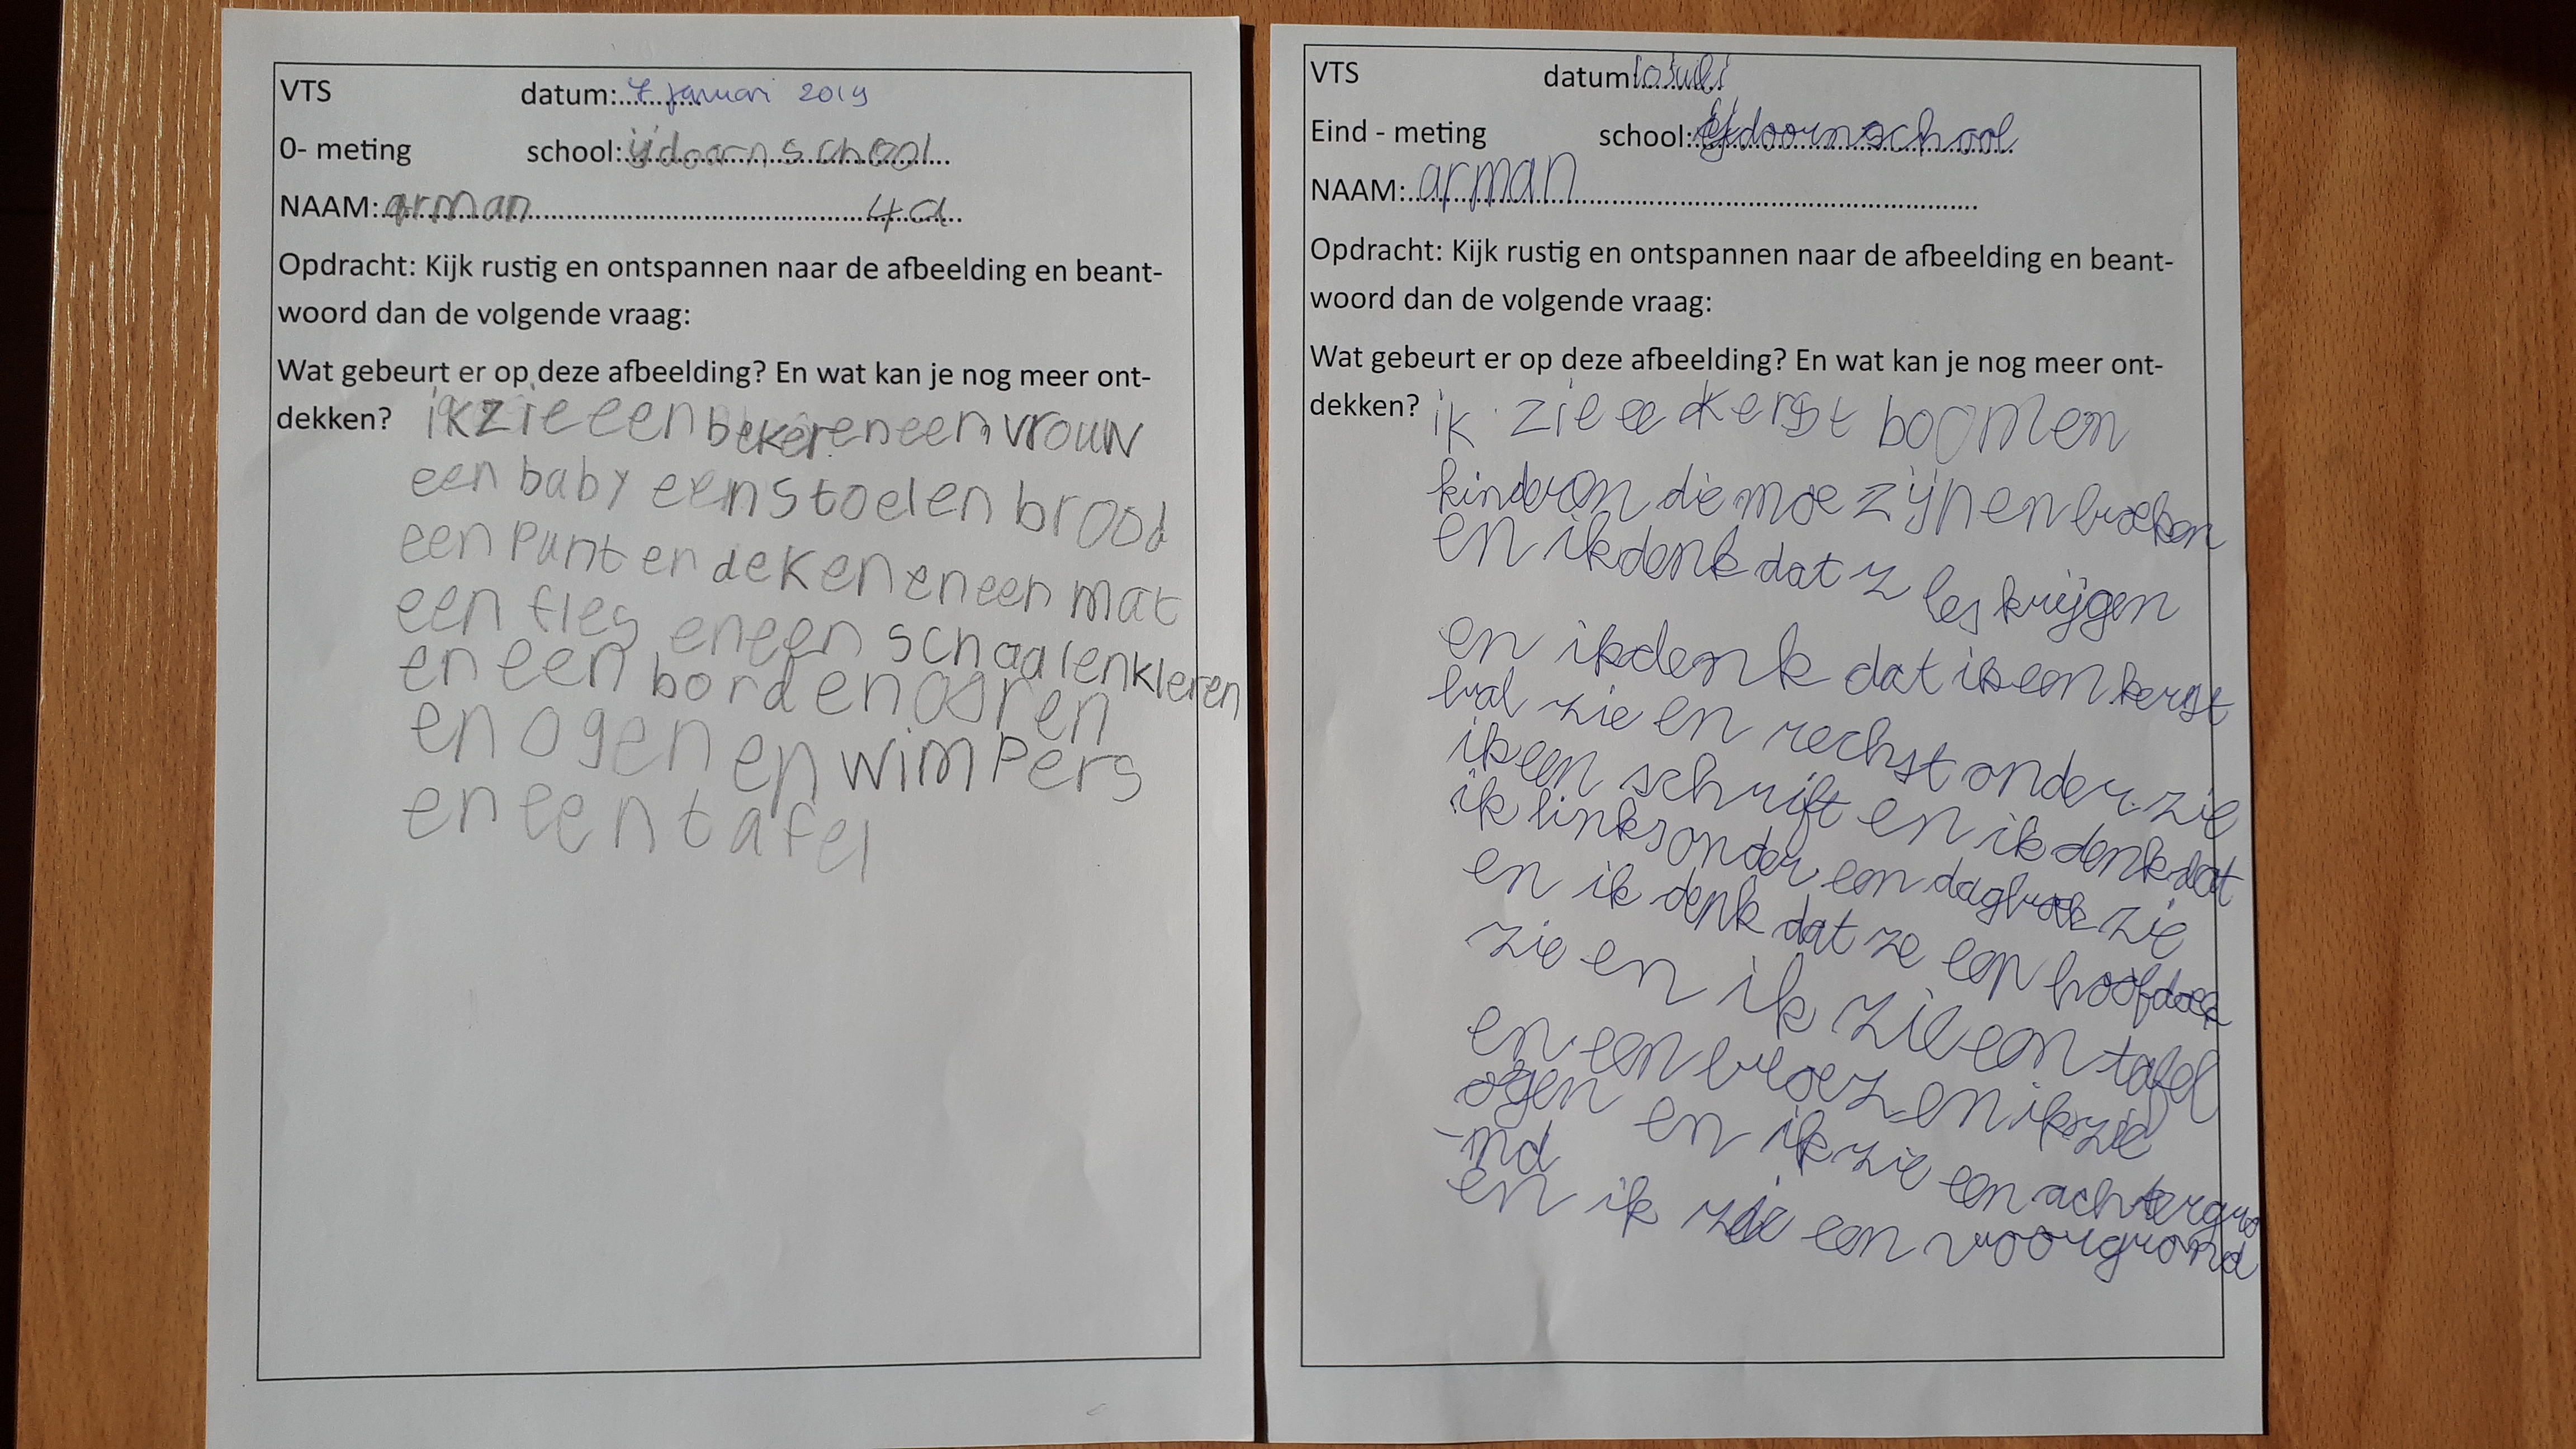 VTS datum: 7 januari 2019
0- meting school: ijdoornschool
NAAM: arman 4a
Opdracht: Kijk rustig en ontspannen naar de afbeelding en beant-
woord dan de volgende vraag:
Wat gebeurt er op deze afbeelding? En wat kan je nog meer ont-
dekken? ik zie een beker en een vrouw
een baby een stoel en brood
een punt en deken en een mat
een fles en een schaal en kleren
en een bord en oren
en ogen en wimpers
en een tafel
VTS datum: 10 juli
Eind - meting school: ijdoornschool
NAAM: arman
Opdracht: Kijk rustig en ontspannen naar de afbeelding en beant-
woord dan de volgende vraag:
Wat gebeurt er op deze afbeelding? En wat kan je nog meer ont-
dekken? ik zie ee kerst boomen
kinderen die moe zijn en broeken
en ik denk dat z les krijgen
en ik denk dat ik een kerst
bal zie en rechst onder zie
ik een schrift en ik denk dat
ik links onder een dagboek zie
en ik denk dat ze een hoofdoek
zie en ik zie een tafel
en een bloez en ik zie
ogen en ik zie een achtergro
-nd
en ik zie een voorgrond